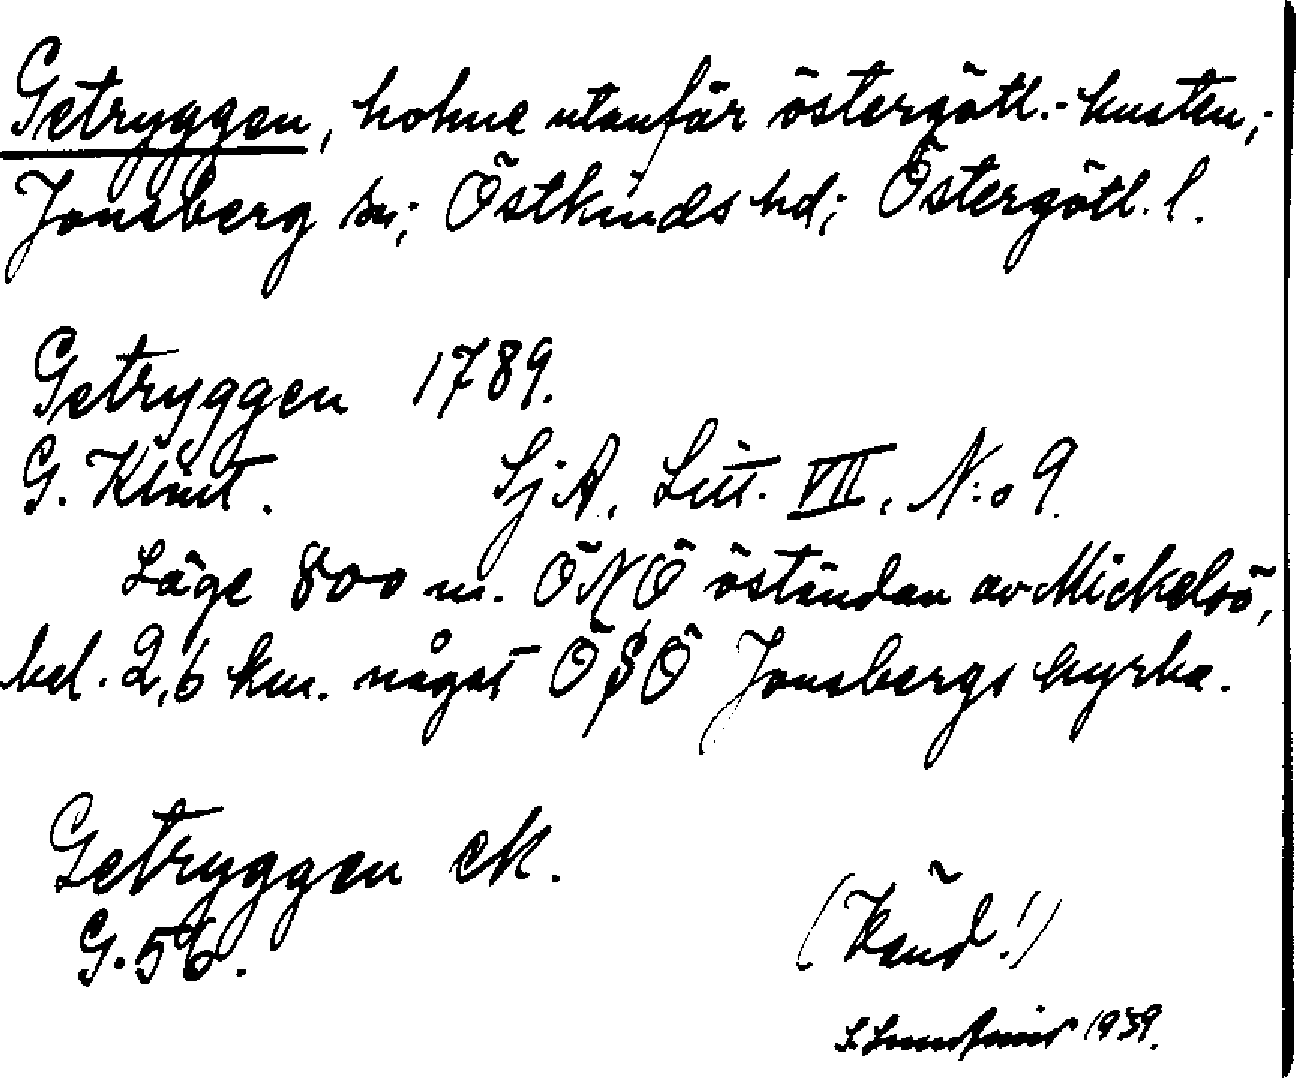 Getryggen, holme utanför östergötl.-kusten,-
Jonsberg sn; Östkinds hd; Östergötl. l.
Getryggen 1789.
G. Klint. SjA, Litt. VII, N:o 9.
Läge 800 m. ÖNÖ öständan av Mickelsö,
bel. 2,6 km. något ÖSÖ Jonsbergs kyrka.
Getryggen ek.
G. 56.
(Känd!)
1939.